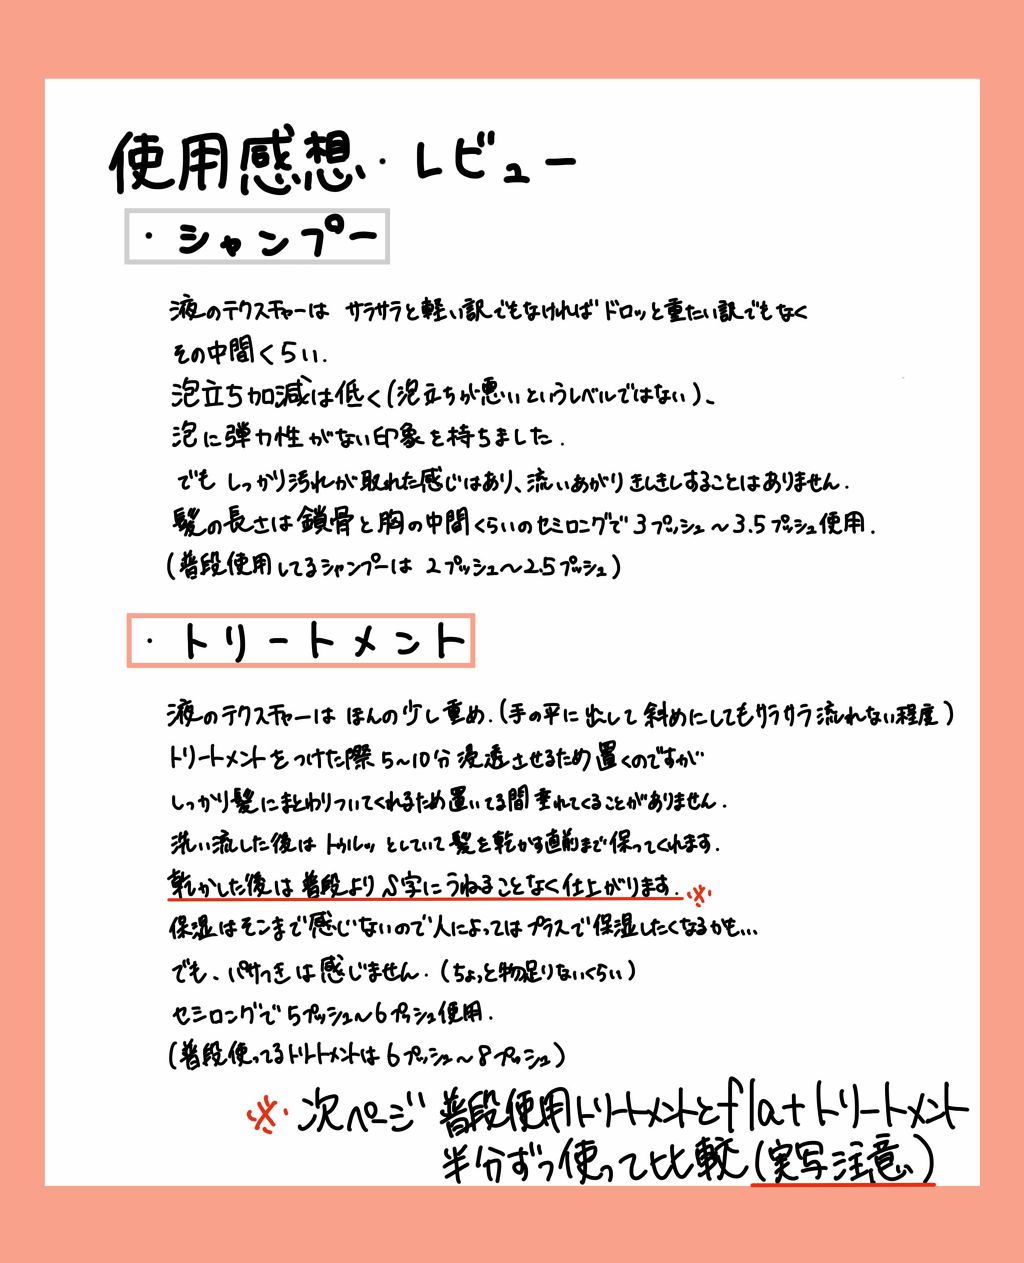 使用感想・レビュー
・シャンプー
液のテクスチャーは サラサラと軽い訳でもなければドロッと重たい訳でもなく
その中間くらい.
泡立ち加減は低く(泡立ちが悪いというレベルではない)、
泡に弾力性がない印象を持ちました.
でも しっかり汚れが取れた感じはあり、流いあがりきしきしすることはありません.
髪の長さは鎖骨と胸の中間くらいのセミロングで3プッシュ～3.5プッシュ使用.
(普段使用してるシャンプーは 2プッシュ～2.5プッシュ)
・トリートメント
液のテクスチャーは ほんの少し重め.(手の平に出して斜めにしてもサラサラ流れない程度)
トリートメントをつけた際5~10分浸透させるため置くのですが
しっかり髪にまとわりついてくれるため置いてる間垂れてくることがありません.
洗い流した後は トゥルッとしていて髪を乾かす直前まで保ってくれます.
乾かした後は普段よりS字にうねることなく仕上がります.※
保湿はそこまで感じないので人によってはプラスで保湿したくなるかも...
でも、パサつきは感じません.(ちょっと物足りないくらい)
セミロングで5プッシュ～6プッシュ使用.
(普段使ってるトリートメントは6プッシュ～8プッシュ)
※次ページ 普段使用トリートメントとflatトリートメント
半分ずつ使って比較(実写注意)